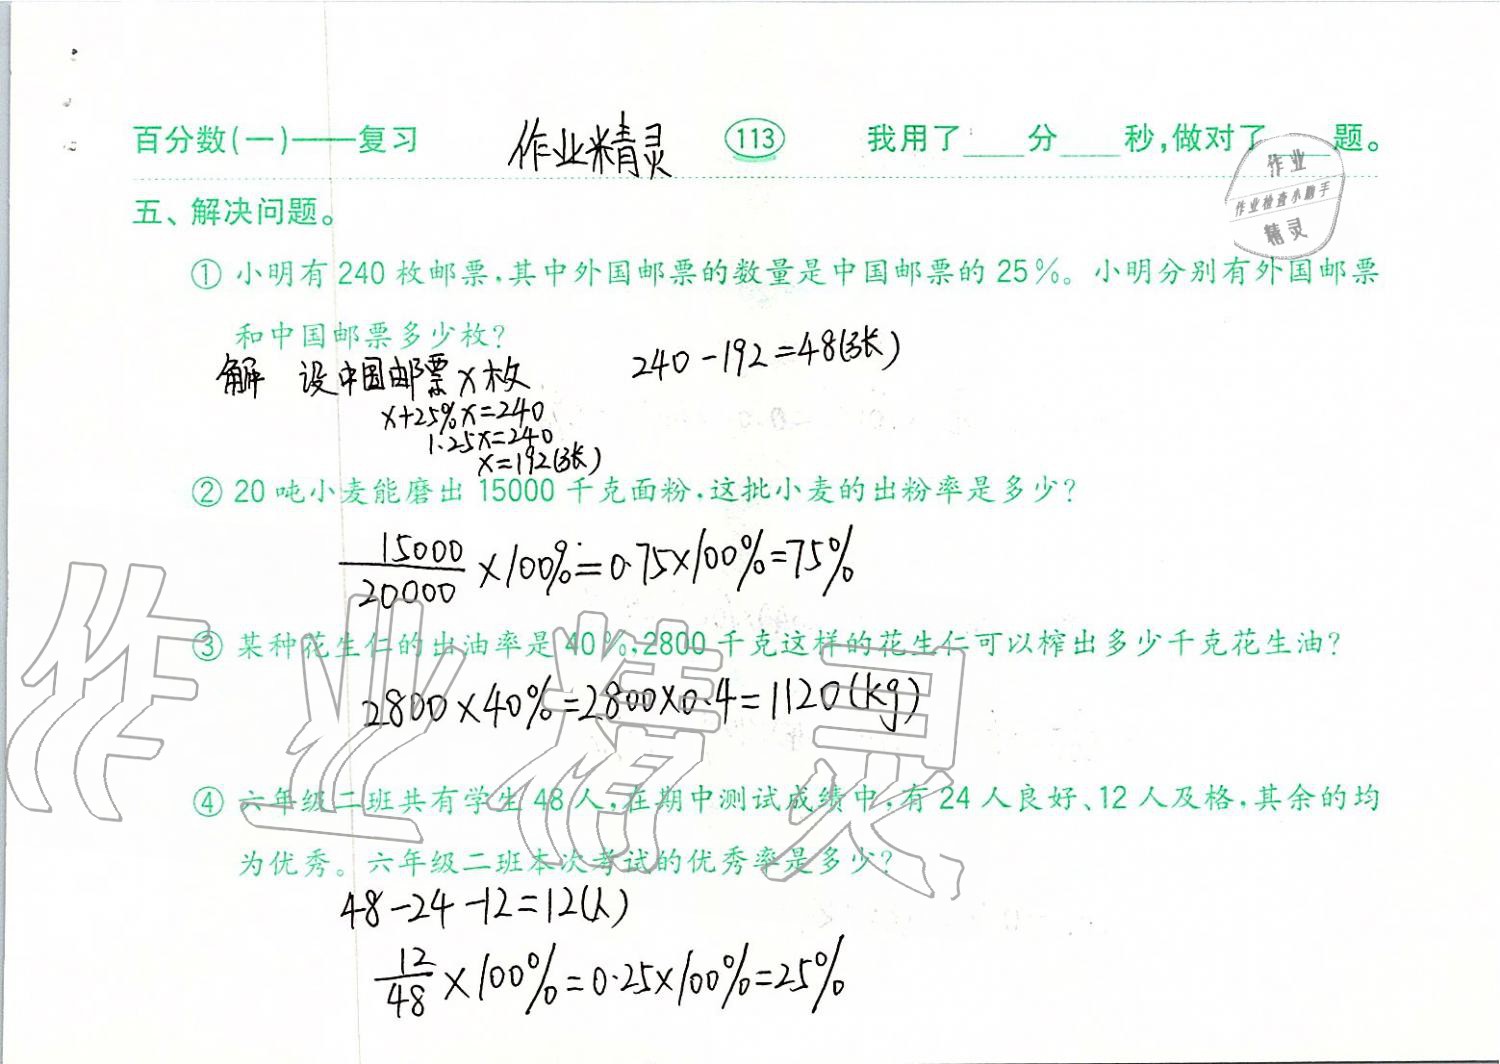 百分数(一)——复习 作业精灵 113 我用了____分____秒,做对了____题。
作业
作业检查小助手
精灵
五、解决问题。
① 小明有 240 枚邮票,其中外国邮票的数量是中国邮票的 25%。小明分别有外国邮票
和中国邮票多少枚?
解 设中国邮票x枚 240-192=48(张)
x+25%x=240
1.25x=240
x=192(张)
② 20 吨小麦能磨出 15000 千克面粉,这批小麦的出粉率是多少?
15000/20000×100%=0.75×100%=75%
③ 某种花生仁的出油率是 40%,2800 千克这样的花生仁可以榨出多少千克花生油?
2800×40%=2800×0.4=1120(kg)
作业精灵
④ 六年级二班共有学生 48 人,在期中测试成绩中,有 24 人良好、12 人及格,其余的均
为优秀。六年级二班本次考试的优秀率是多少?
48-24-12=12(人)
12/48×100%=0.25×100%=25%